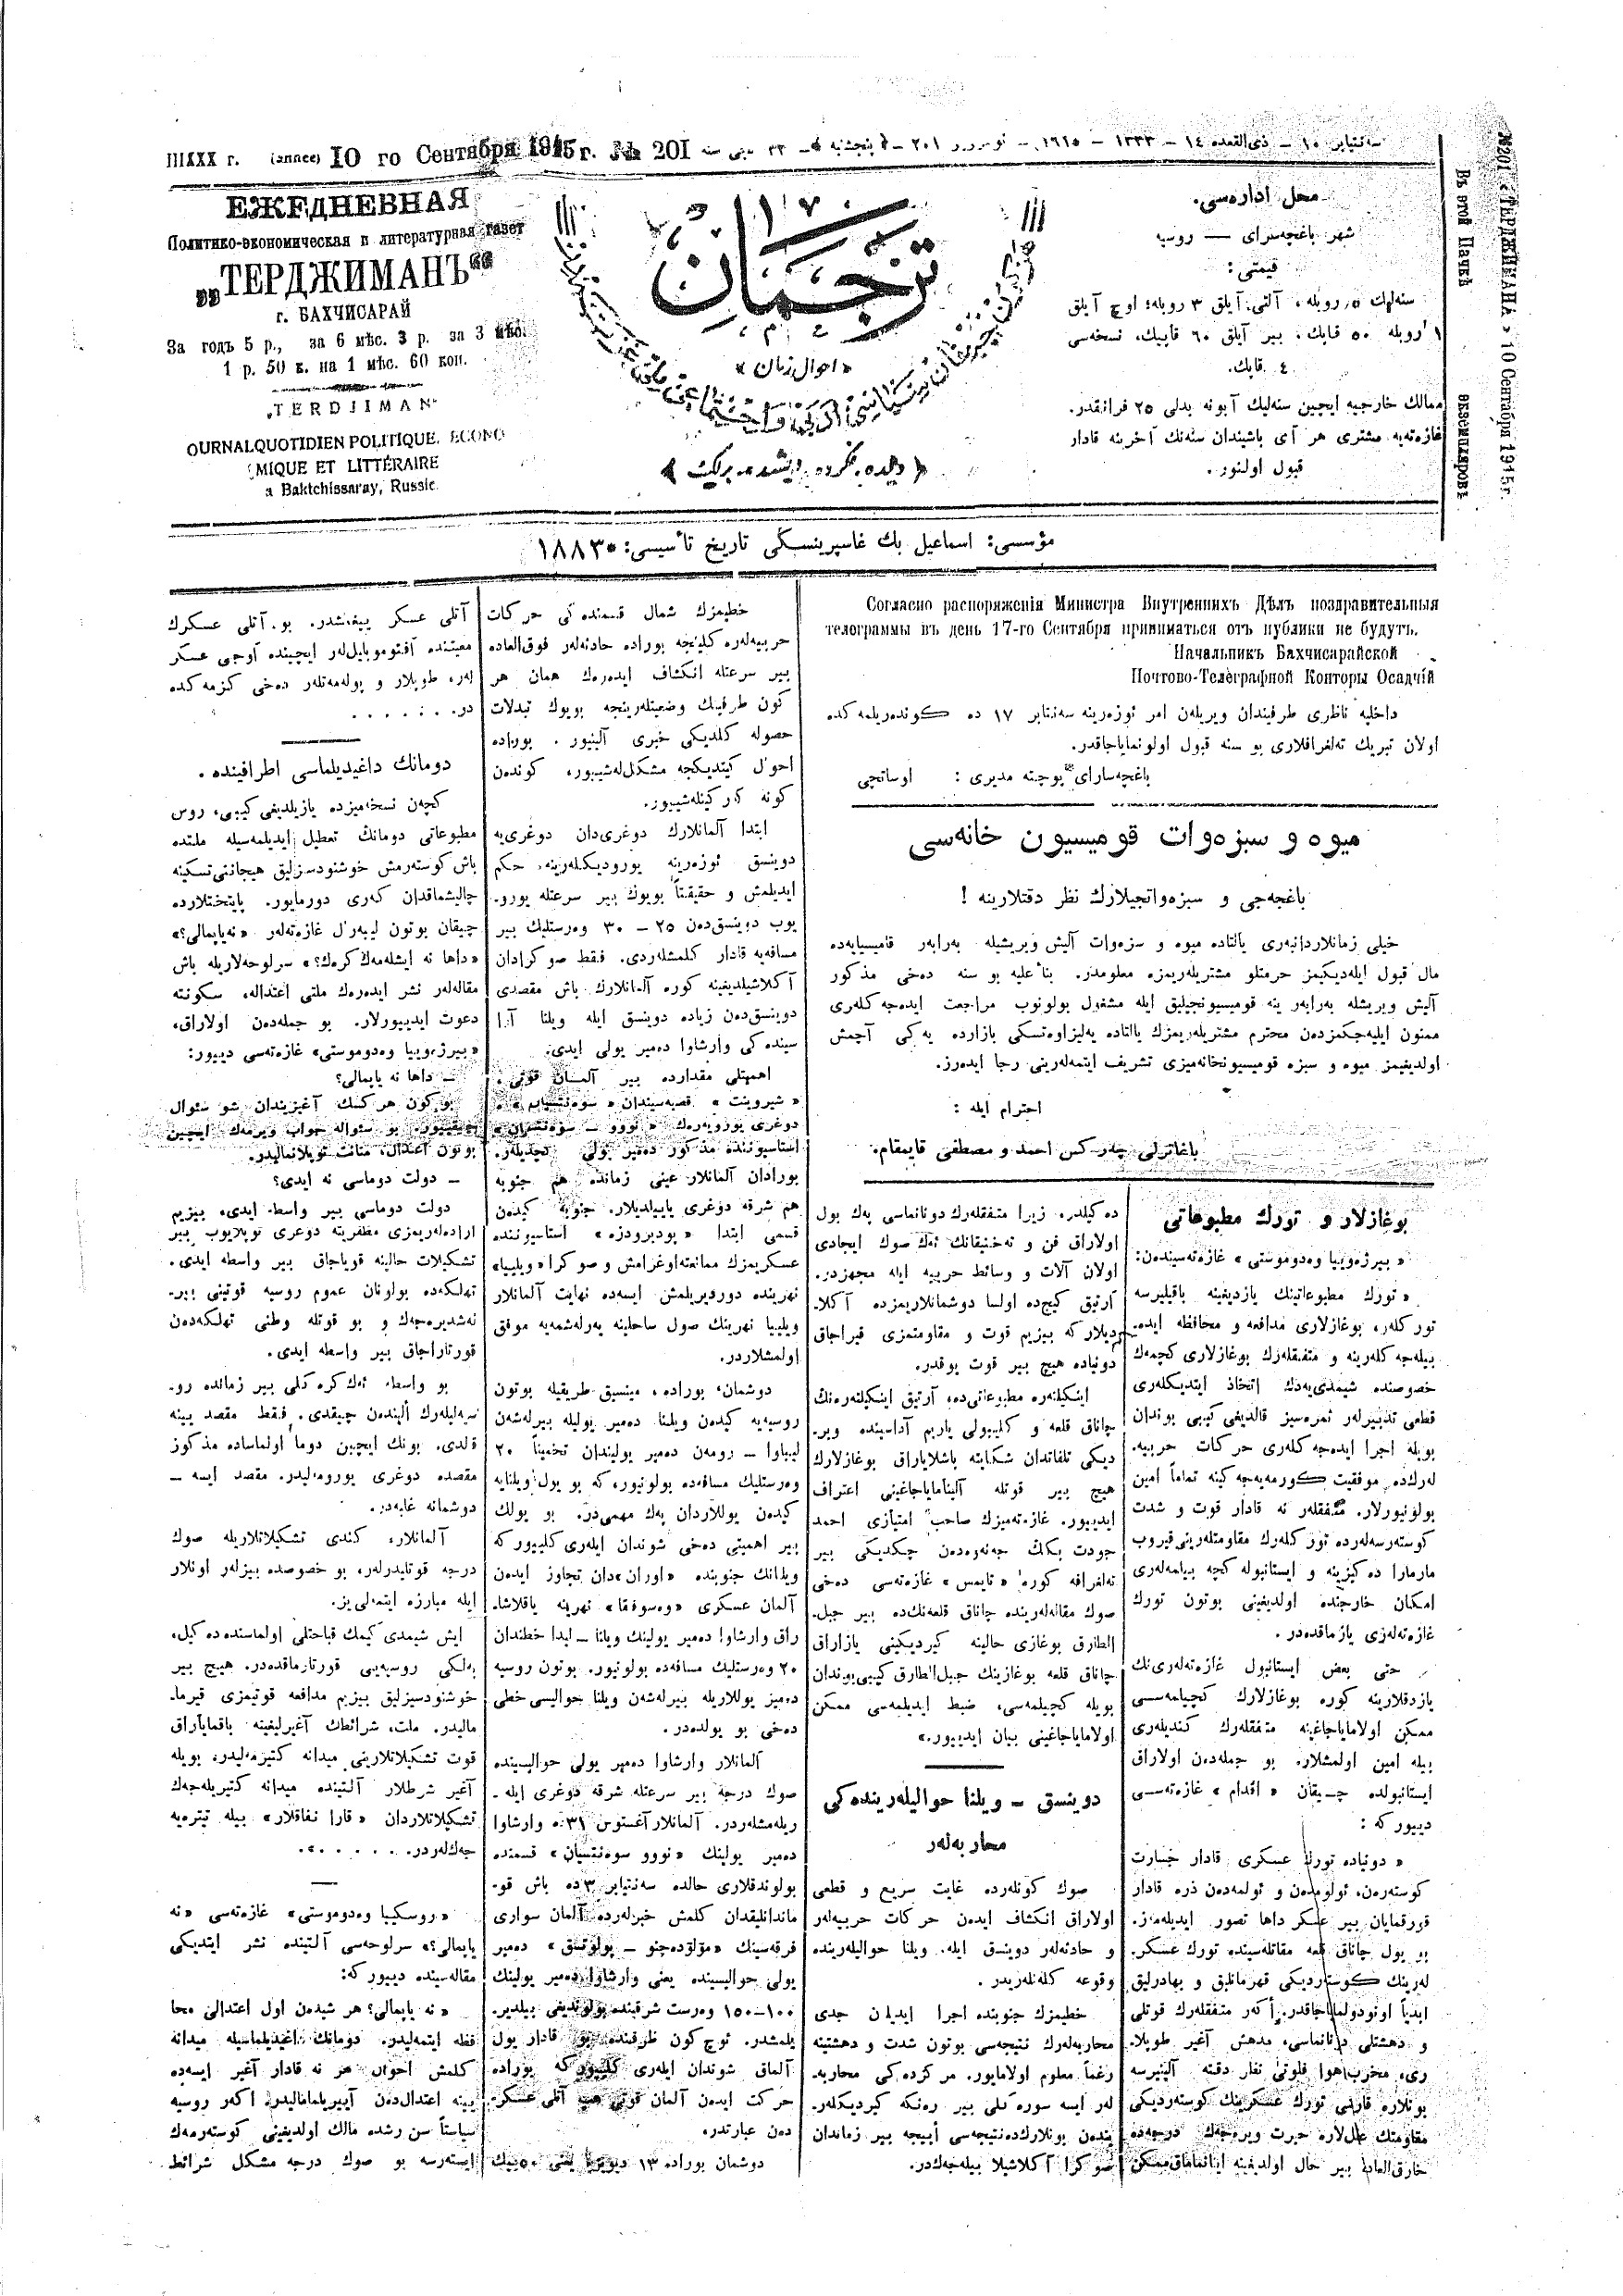 IIIXXX г. (annee) 10 го Сентября 1915 г. № 201
سه‌نتیابر ۱۰ – ذی‌القعده ۱٤ – ۱۳۳۳ – ۱۹۱٥ – نومرو ۲۰۱ – پنجشنبه – ۳۳ نجی سنه
ЕЖЕДНЕВНАЯ
Политико-экономическая и литературная газет
„ТЕРДЖИМАНЪ“
г. БАХЧИСАРАЙ
За годъ 5 р., за 6 мѣс. 3 р. за 3 мѣс.
1 р. 50 к. на 1 мѣс. 60 коп.
„TERDJIMAN“
OURNALQUOTIDIEN POLITIQUE, ECONO
MIQUE ET LITTÉRAIRE
a Baktchissaray, Russie.
ترجمان
« احوال زمان »
محل اداره‌سی.
شهر باغچه‌سرای — روسیه
قیمتی :
سنه‌لیك ٥ روبله، آلتی آیلق ۳ روبله؛ اوچ آیلق
۱ روبله ٥۰ قاپك، بیر آیلق ٦۰ قاپیك، نسخه‌سی
٤ قاپك.
ممالك خارجیه ایچین سنه‌لیك آبونه بدلی ۲٥ فرانقدر.
غازه‌ته‌یه مشتری هر آی باشیندان سنه‌نك آخرینه قادار
قبول اولنور.
№201 «ТЕРДЖИМАНА» 10 Сентября 1915 г.
Въ этой Пачкѣ экземпляровъ
مؤسسی: اسماعیل بك غاسپرینسکی تاریخ تأسیسی: ۱۸۸۳
Согласно распоряженія Министра Внутреннихъ Дѣлъ поздравительныя
телограммы въ день 17-го Сентября приниматься отъ публики не будутъ.
Начальникъ Бахчисарайской
Почтово-Телеграфной Конторы Осадчій
داخلیه ناظری طرفیندان ویریله‌ن امر ئوزه‌رینه سه‌نتیابر ۱۷ ده کونده‌ریلمه‌كده
اولان تبریك ته‌لغرافلاری بو سنه قبول اولونمایاجاقدر.
باغچه‌سارای پوچته مدیری : اوساتچی
میوه و سبزه‌وات قومیسیون خانه‌سی
باغچه‌جی و سبزه‌واتجیلارك نظر دقتلارینه !
خیلی زمانلاردانبه‌ری یالتاده میوه و سبزه‌وات آلیش ویریشیله به‌رابه‌ر قامیسیایه‌ده
مال قبول ایله‌دیكیمز حرمتلو مشتریله‌ریمزه معلومدر. بناً علیه بو سنه ده‌خی مذكور
آلیش ویریشله به‌رابه‌ر ینه قومیسیونجیلیق ایله مشغول بولونوب مراجعت ایده‌جه‌كله‌ری
ممنون ایلیه‌جكمزدن محترم مشتریله‌ریمزك یالتاده یه‌لیزاوه‌تسكی بازارده یه‌كی آچمش
اولدیغیمز میوه و سبزه قومیسیونخانه‌میزی تشریف ایتمه‌له‌رینی رجا ایده‌رز.
احترام ایله :
باغاترلی چه‌ركس احمد و مصطفی قایمقام.
بوغازلار و تورك مطبوعاتی
« بیرژه‌وییا وه‌دوموستی » غازه‌ته‌سیندن:
« تورك مطبوعاتینك یازدیغینه باقیلیرسه
توركله‌ر، بوغازلاری مدافعه و محافظه ایده-
بیله‌جه‌كله‌رینه و متفقله‌رك بوغازلاری كچمه‌ك
خصوصنده شیمدی‌یه‌دك اتخاذ ایتدیكله‌ری
قطعی تدبیرله‌ر ثمره‌سیز قالدیغی كیبی بوندان
بویله اجرا ایده‌جه‌كله‌ری حركات حربیه-
له‌رك‌ده موفقیت كورمه‌یه‌جه‌كینه تماماً امین
بولونیورلار. متفقله‌ر نه قادار قوت و شدت
كوسته‌رسه‌له‌رده توركله‌رك مقاومتله‌رینی قیروب
مارمارا ده‌كیزینه و ایستانبوله كچه بیلمه‌له‌ری
امكان خارجنده اولدیغینی بوتون تورك
غازه‌ته‌له‌ری یازماقده‌در.
حتی بعض ایستانبول غازه‌ته‌له‌رینك
یازدقلارینه كوره بوغازلارك كچیلمه‌سی
ممكن اولامایاجاغینه متفقله‌رك كندیله‌ری
بیله امین اولمشلار. بو جمله‌دن اولاراق
ایستانبولده چیقان « اقدام » غازه‌ته‌سی
دییور كه :
« دونیاده تورك عسكری قادار جسارت
كوسته‌رن، ئولومدن و ئولمه‌دن ذره قادار
قورقمایان بیر عسكر داها تصور ایدیله‌مز.
بو یول چاناق قلعه مقاتله‌سینده تورك عسكر-
له‌رینك كوستردیكی قهرمانلیق و بهادرلیق
ابدیاً اونودولمایاجاقدر. أكه‌ر متفقله‌رك قوتلی
و دهشتلی دونانماسی، مدهش آغیر طوپلا-
ری، مخرب اهوا قلوتی نظر دقته آلینیرسه
بونلاره قارشی تورك عسكرینك كوسته‌ردیكی
مقاومتك عقللاره حیرت ویره‌جه‌ك درجه‌ده
خارق‌العاده بیر حال اولدیغینه اینانماماق ممكن
ده‌كیلدر. زیرا متفقله‌رك دونانماسی په‌ك بول
اولاراق فن و ته‌خنیقانك ئه‌ك صوك ایجادی
اولان آلات و وسائط حربیه ایله مجهزدر.
آرتیق كیچ‌ده اولسا دوشمانلاریمزده آكلا-
دیلار كه بیزیم قوت و مقاومتمزی قیراجاق
دونیاده هیچ بیر قوت یوقدر.
اینكلته‌ره مطبوعاتی‌ده، آرتیق اینكیلته‌ره‌نك
چاناق قلعه و كلیبولی یاریم آداسینده ویر-
دیكی تلفاتدان شكایته باشلایاراق بوغازلارك
هیچ بیر قوتله آلینامایاجاغینی اعتراف
ایدییور. غازه‌ته‌میزك صاحب امتیازی احمد
جودت بكك جه‌نه‌وه‌دن چكدیكی بیر
ته‌لغرافه كوره « تایمس » غازه‌ته‌سی ده‌خی
صوك مقاله‌له‌رینده چاناق قلعه‌نك‌ده بیر جبل-
الطارق بوغازی حالینه كیردیكینی یازاراق
چاناق قلعه بوغازینك جبل‌الطارق كیبی بوندان
بویله كچیلمه‌سی، ضبط ایدیلمه‌سی ممكن
اولامایاجاغینی بیان ایدییور.»
دوینسق – ویلنا حوالیله‌رینده‌كی
محاربه‌له‌ر
صوك كونله‌رده غایت سریع و قطعی
اولاراق انكشاف ایده‌ن حركات حربیه‌له‌ر
و حادثه‌له‌ر دوینسق ایله، ویلنا حوالیله‌رینده
وقوعه كلمه‌له‌ریدر.
خطیمزك جنوبنده اجرا ایدیلن جدی
محاربه‌له‌رك نتیجه‌سی بوتون شدت و دهشتینه
رغماً معلوم اولامایور. مركزده‌كی محاربه-
له‌ر ایسه سوره‌كلی بیر ره‌نكه كیردیكله‌ر-
یندن بونلارك‌ده نتیجه‌سی أپیجه بیر زماندان
صوكرا آكلاشیلا بیله‌جه‌كدر.
خطیمزك شمال قسمنده‌كی حركات
حربیه‌له‌ره كلینجه بوراده حادثه‌له‌ر فوق‌العاده
بیر سرعتله انكشاف ایده‌رك همان هر
كون طرفینك وضعیتله‌رینجه بویوك تبدلات
حصوله كلدیكی خبری آلینیور. بوراده
احوال كیتدیكجه مشكل‌له‌شییور، كوندن
كونه كركینله‌شییور.
ابتدا آلمانلارك دوغری‌دان دوغری‌یه
دوینسق ئوزه‌رینه یورودیكله‌رینه حكم
ایدیلمش و حقیقتاً بویوك بیر سرعتله یورو-
یوب دوینسق‌دن ۲٥ – ۳۰ وه‌رستلیك بیر
مسافه‌یه قادار كلمشله‌ردی. فقط صوكرادان
آكلاشیلدیغینه كوره آلمانلارك باش مقصدی
دوینسق‌دن زیاده دوینسق ایله ویلنا آرا
سینده‌كی وارشاوا ده‌میر یولی ایدی.
اهمیتلی مقدارده بیر آلمان قوتی،
« شیروینت » قصبه‌سیندان « سوه‌نتسیان » ه
دوغری یورویه‌رك « نووو – سوه‌نتسیان »
استاسیوننده مذكور ده‌میر یولی كچدیلر.
بورادان آلمانلار عینی زمانده هم جنوبه
هم شرقه دوغری یاییلدیلار. جنوبه كیدن
قسمی ابتدا « پودبرودزه » استاسیوننده
عسكریمزك ممانعته اوغرامش و صوكرا « ویلییا»
نهرینده دوردیریلمش ایسه‌ده نهایت آلمانلار
ویلییا نهرینك صول ساحلینه یه‌رله‌شمه‌یه موفق
اولمشلاردر.
دوشمان، بوراده، مینسق طریقیله بوتون
روسیه‌یه كیدن ویلنا ده‌میر یولیله بیرله‌شه‌ن
لیباوا – رومه‌ن ده‌میر یولیندان تخمیناً ۲۰
وه‌رستلیك مسافه‌ده بولونیور، كه بو یول ویلنایه
كیدن یوللاردان په‌ك مهمی‌در. بو یولك
بیر اهمیتی ده‌خی شوندان ایله‌ری كلییور كه
ویلنانك جنوبنده « اوران »‌دان تجاوز ایدن
آلمان عسكری « وه‌سوقفا » نهرینه یاقلاشا-
راق وارشاوا ده‌میر یولینك ویلنا – لیدا خطندان
۲۰ وه‌رستلیك مسافه‌ده بولونیور. بوتون روسیه
ده‌میر یوللاریله بیرله‌شه‌ن ویلنا حوالیسی خطی
ده‌خی بو یولده‌در.
آلمانلار وارشاوا ده‌میر یولی حوالیسینده
صوك درجه بیر سرعتله شرقه دوغری ایله-
ریله‌مشله‌ردر. آلمانلار آغستوس ۳۱ ده وارشاوا
ده‌میر یولینك « نووو سوه‌نتسیان » قسمنده
بولوندقلاری حالده سه‌نتیابر ۳ ده باش قو-
ماندانلیقدان كلمش خبرله‌رده آلمان سواری
فرقه‌سینك « مولوده‌چنو – پولوتسق » ده‌میر
یولی حوالیسینده یعنی وارشاوا ده‌میر یولینك
۱۰۰–۱٥۰ وه‌رست شرقینده بولوندیغی بیلدیر-
یلمشدر. ئوچ كون ظرفینده بو قادار یول
آلماق شوندان ایله‌ری كلییور كه بوراده
حركت ایدن آلمان قوتی هپ آتلی عسكر-
ده‌ن عبارتدر.
دوشمان بوراده ۱۳ دیویزیا یعنی ٥۰ بیك
آتلی عسكر ییغمشدر. بو آتلی عسكرك
معیتنده آفتوموبایل‌له‌ر ایچینده آوجی عسكر
له‌ر، طوپلار و پوله‌مه‌تله‌ر ده‌خی كزمه‌كده
در. . . . . . .
دومانك داغیدیلماسی اطرافینده.
كچه‌ن نسخه‌میزده یازیلدیغی كیبی، روس
مطبوعاتی دومانك تعطیل ایدیلمه‌سیله ملتده
باش كوسته‌رمش خوشنودسزلیق هیجانی تسكینه
چالیشماقدان كه‌ری دورمایور. پایتختلارده
چیقان بوتون لیبه‌رال غازه‌ته‌له‌ر «نه یاپمالی؟»
«داها نه ایشله‌مه‌ك كره‌ك؟» سرلوحه‌لاریله باش
مقاله‌له‌ر نشر ایده‌رك ملتی اعتداله، سكونته
دعوت ایدییورلار. بو جمله‌دن اولاراق،
«بیرژه‌وییا وه‌دوموستی» غازه‌ته‌سی دییور:
– داها نه یاپمالی؟
بو كون هركسك آغیزیندان شو سئوال
چیقییور. بو سئواله جواب ویرمه‌ك ایچین
بوتون اعتدال، متانت توپلانمالیدر.
– دولت دوماسی نه ایدی؟
دولت دوماسی بیر واسطه ایدی، بیزیم
اراده‌له‌ریمزی مظفریته دوغری توپلایوب بیر
تشكیلات حالینه قویاجاق بیر واسطه ایدی.
تهلكه‌ده بولونان عموم روسیه قوتینی بیر-
له‌شدیره‌جه‌ك و بو قوتله وطنی تهلكه‌دن
قورتاراجاق بیر واسطه ایدی.
بو واسطه ئه‌ك كره‌كلی بیر زمانده رو-
سیه‌لیله‌رك ألیندن چیقدی. فقط مقصد یینه
قلدی. بونك ایچین دوما اولماسا‌ده مذكور
مقصده دوغری یورومه‌لیدر. مقصد ایسه –
دوشمانه غلبه‌در.
آلمانلار، كندی تشكیلاتلاریله صوك
درجه قوتلیدرله‌ر، بو خصوصده بیزله‌ر اونلار
ایله مبارزه ایتمه‌لی‌یز.
ایش شیمدی كیمك قباحتلی اولماسنده ده‌كیل،
به‌لكی روسیه‌یی قورتارماقده‌در. هیچ بیر
خوشنودسیزلیق بیزیم مدافعه قوتیمزی قیرما-
مالیدر. ملت، شرائطك آغیرلیغینه باقمایاراق
قوت تشكیلاتلارینی میدانه كتیرمه‌لیدر. بویله
آغیر شرطلار آلتینده میدانه كتیریله‌جه‌ك
تشكیلاتلاردان « قارا نفاقلار » بیله تیتره‌یه
جه‌كله‌ردر. . . . . . ».
«روسكییا وه‌دوموستی» غازه‌ته‌سی «نه
یاپمالی؟» سرلوحه‌سی آلتینده نشر ایتدیكی
مقاله‌سینده دییور كه:
« نه یاپمالی؟ هر شیدن اول اعتدالی محا
فظه ایتمه‌لیدر. دومانك داغیدیلماسیله میدانه
كلمش احوال هر نه قادار آغیر ایسه‌ده
یینه اعتدال‌دن آییریلمامالیدر. اكه‌ر روسیه
سیاستاً سن رشده مالك اولدیغینی كوسته‌رمه‌ك
ایسته‌رسه بو صوك درجه مشكل شرائط